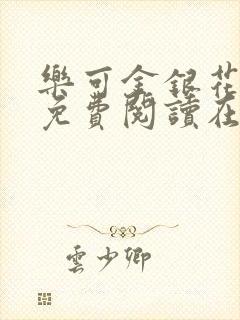 樂可金銀花
免費閱讀在
雲少卿